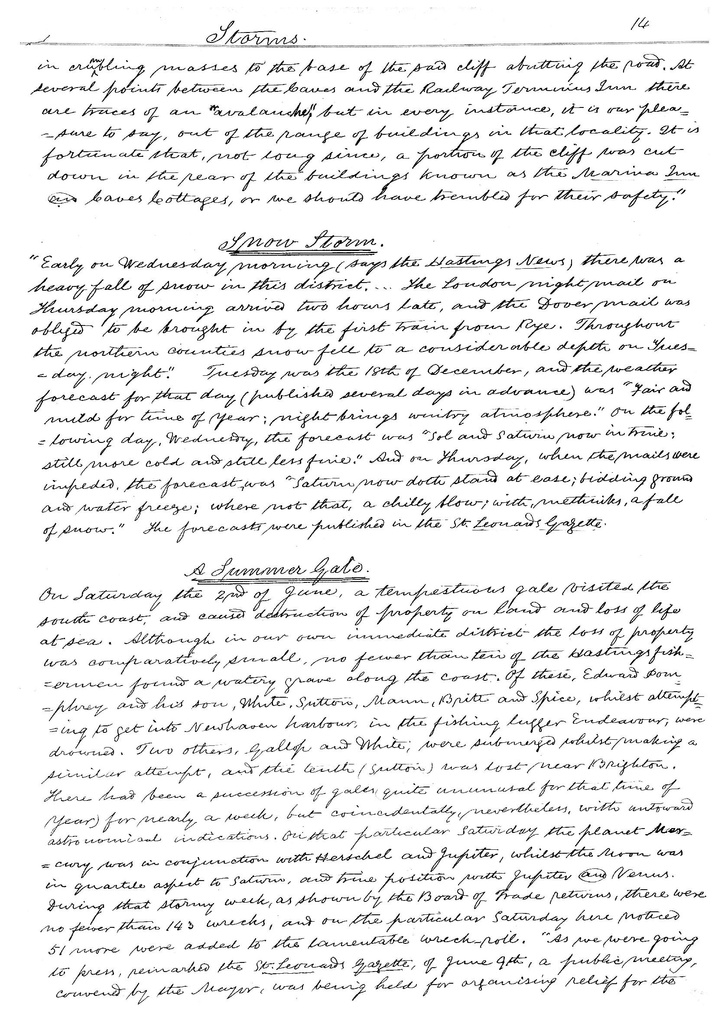 Storms. 14
in crumbling masses to the base of the said cliff abutting the road. At
several points between the Caves and the Railway Terminus Inn there
are traces of an "avalanche," but in every instance, it is our plea=
=sure to say, out of the range of buildings in that locality. It is
fortunate that, not long since, a portion of the cliff was cut
down in the rear of the buildings known as the Marina Inn
and Caves Cottages, or we should have trembled for their safety."
Snow Storm.
"Early on Wednesday morning (says the Hastings News) there was a
heavy fall of snow in this district. ... The London night mail on
Thursday morning arrived two hours late, and the Dover mail was
obliged to be brought in by the first train from Rye. Throughout
the northern counties snow fell to a considerable depth on Tues=
=day night." Tuesday was the 18th of December, and the weather
forecast for that day (published several days in advance) was "Fair and
mild for time of Year; night brings wintry atmosphere." On the fol=
=lowing day, Wednesday, the forecast was "Sol and Saturn now in trine;
still more cold and still less fine." And on Thursday, when the mails were
impeded, the forecast was "Saturn now doth stand at ease; bidding ground
and water freeze; where not that, a chilly blow; with, methinks, a fale
of snow." The forecasts were published in the St. Leonards Gazette.
A Summer Gale.
On Saturday the 2nd of June, a tempestuous gale visited the
south coast, and caused destruction of property on land and loss of life
at sea. Although in our own immediate district the loss of property
was comparatively small, no fewer than ten of the Hastings fish=
=ermen found a watery grave along the coast. Of these, Edward Dom=
=phrey and his son, White, Sutton, Mann, Britt and Spice, whilst attempt=
=ing to get into Newhaven harbour, in the fishing lugger Endeavour, were
drowned. Two others, Gallop and White, were submerged whilst making a
similar attempt, and the tenth (Sutton) was lost near Brighton.
There had been a succession of gales quite unusual for that time of
Year) for nearly a week, but coincidentally, nevertheless, with untoward
astronomical indications. On that particular Saturday the planet Mer=
=cury was in conjunction with Herschel and Jupiter, whilst the Moon was
in quartile aspect to Saturn, and trine position with Jupiter and Venus.
During that stormy week, as shown by the Board of Trade returns, there were
no fewer than 143 wrecks, and on the particular Saturday here noticed
51 more were added to the lamentable wreck-roll. "As we were going
to press, remarked the St. Leonards Gazette, of June 9th, a public meeting,
convend by the Mayor, was being held for organising relief for the